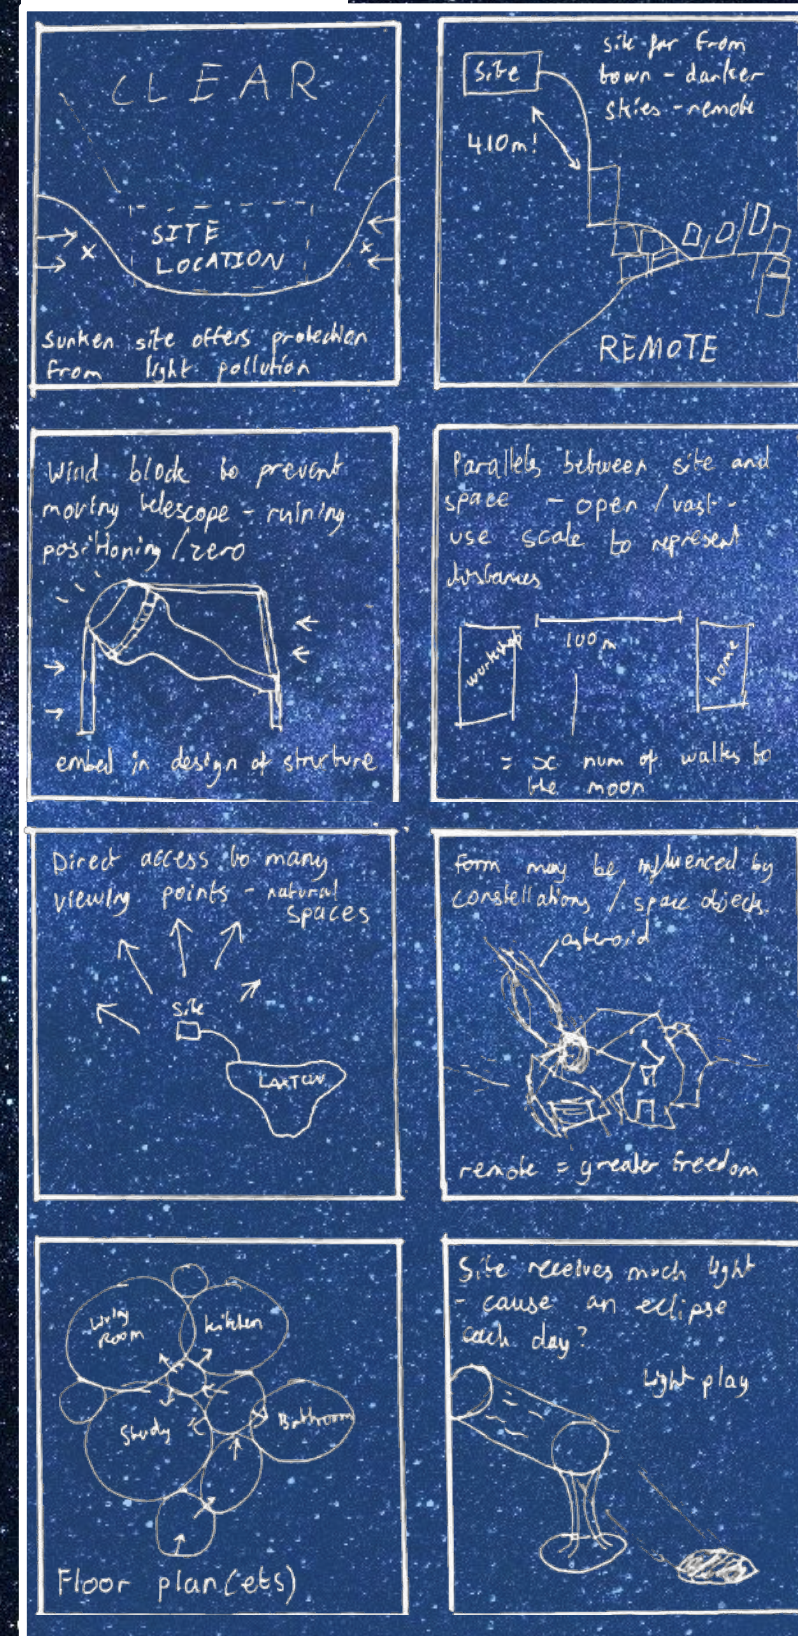 CLEAR
SITE
LOCATION
Sunken site offers protection
from light pollution
site far from
town - darker
skies - remote
Site
410m!
REMOTE
Wind block to prevent
moving telescope - ruining
positioning / zero
embed in design of structure
Parallels between site and
space - open / vast -
use scale to represent
distances
workshop
100m
home
= x num of walks to
the moon
Direct access to many
viewing points - natural
spaces
site
LAXTON
form may be influenced by
constellations / space objects
asteroid
remote = greater freedom
Living
Room
kitchen
Study
Bathroom
Floor plan(ets)
Site receives much light
- cause an eclipse
each day?
Light play